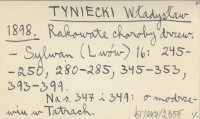 TYNIECKI Władysław
1898. Rakowate choroby drzew.
— Sylwan (Lwów) 16: 245-
-250, 280-285, 345-353,
393-399.
Na s. 347 i 349: o modrze-
wiu w Tatrach.